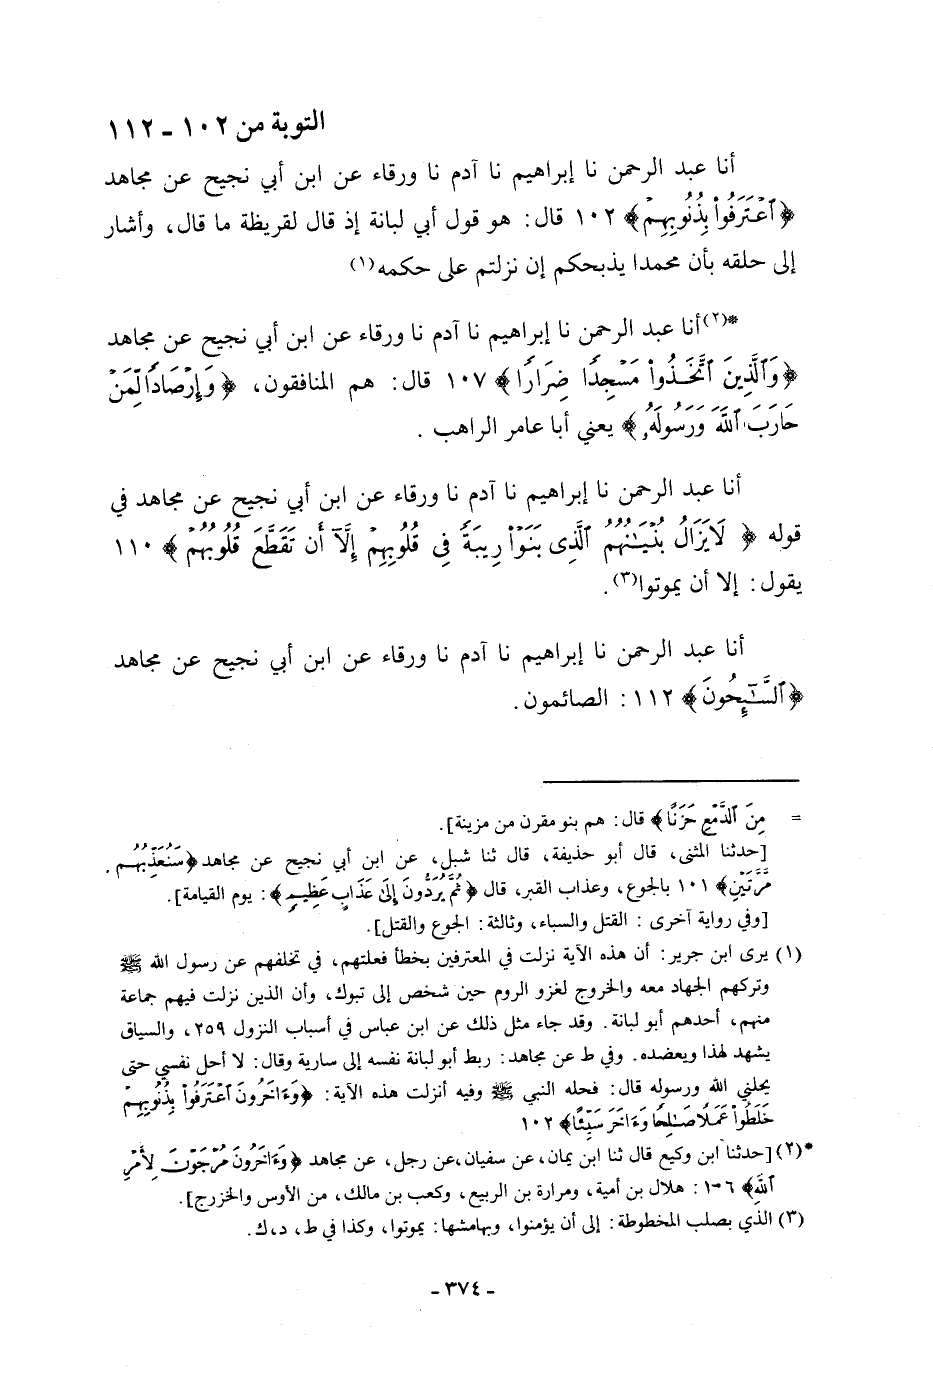 التوبة من ١٠٢ - ١١٢
أنا عبد الرحمن نا إبراهيم نا آدم نا ورقاء عن ابن أبي نجيح عن مجاهد
﴿ٱعۡتَرَفُواْ بِذُنُوبِهِمۡ﴾ ١٠٢ قال: هو قول أبي لبانة إذ قال لقريظة ما قال، وأشار
إلى حلقه بأن محمدا يذبحكم إن نزلتم على حكمه(١)
*(٢)أنا عبد الرحمن نا إبراهيم نا آدم نا ورقاء عن ابن أبي نجيح عن مجاهد
﴿وَٱلَّذِينَ ٱتَّخَذُواْ مَسۡجِدٗا ضِرَارٗا﴾ ١٠٧ قال: هم المنافقون، ﴿وَإِرۡصَادٗا لِّمَنۡ
حَارَبَ ٱللَّهَ وَرَسُولَهُۥ﴾ يعني أبا عامر الراهب .
أنا عبد الرحمن نا إبراهيم نا آدم نا ورقاء عن ابن أبي نجيح عن مجاهد في
قوله ﴿لَا يَزَالُ بُنۡيَٰنُهُمُ ٱلَّذِى بَنَوۡاْ رِيبَةٗ فِى قُلُوبِهِمۡ إِلَّآ أَن تَقَطَّعَ قُلُوبُهُمۡ﴾ ١١٠
يقول: إلا أن يموتوا(٣).
أنا عبد الرحمن نا إبراهيم نا آدم نا ورقاء عن ابن أبي نجيح عن مجاهد
﴿ٱلسَّٰٓئِحُونَ﴾ ١١٢: الصائمون.
= مِنَ ٱلدَّمۡعِ حَزَنًا﴾ قال: هم بنو مقرن من مزينة].
[حدثنا المثنى، قال أبو حذيفة، قال ثنا شبل، عن ابن أبي نجيح عن مجاهد ﴿سَنُعَذِّبُهُم
مَّرَّتَيۡنِ﴾ ١٠١ بالجوع، وعذاب القبر، قال ﴿ثُمَّ يُرَدُّونَ إِلَىٰ عَذَابٍ عَظِيمٖ﴾: يوم القيامة].
[وفي رواية آخرى: القتل والسباء، وثالثة: الجوع والقتل].
(١) يرى ابن جرير: أن هذه الآية نزلت في المعترفين بخطأ فعلتهم، في تخلفهم عن رسول الله ﷺ
وتركهم الجهاد معه والخروج لغزو الروم حين شخص إلى تبوك، وأن الذين نزلت فيهم جماعة
منهم، أحدهم أبو لبانة. وقد جاء مثل ذلك عن ابن عباس في أسباب النزول ٢٥٩، والسياق
يشهد لهذا ويعضده. وفي ط عن مجاهد: ربط أبو لبانة نفسه إلى سارية وقال: لا أحل نفسي حتى
يحلني الله ورسوله قال: فحله النبي ﷺ وفيه أنزلت هذه الآية: ﴿وَءَاخَرُونَ ٱعۡتَرَفُواْ بِذُنُوبِهِمۡ
خَلَطُواْ عَمَلٗا صَٰلِحٗا وَءَاخَرَ سَيِّئًا﴾ ١٠٢
*(٢) [حدثنا ابن وكيع قال ثنا ابن يمان، عن سفيان،عن رجل، عن مجاهد ﴿وَءَاخَرُونَ مُرۡجَوۡنَ لِأَمۡرِ
ٱللَّهِ﴾ ١٠٦: هلال بن أمية، ومرارة بن الربيع، وكعب بن مالك، من الأوس والخزرج].
(٣) الذي بصلب المخطوطة: إلى أن يؤمنوا، وبهامشها: يموتوا، وكذا في ط، د،ك.
- ٣٧٤ -